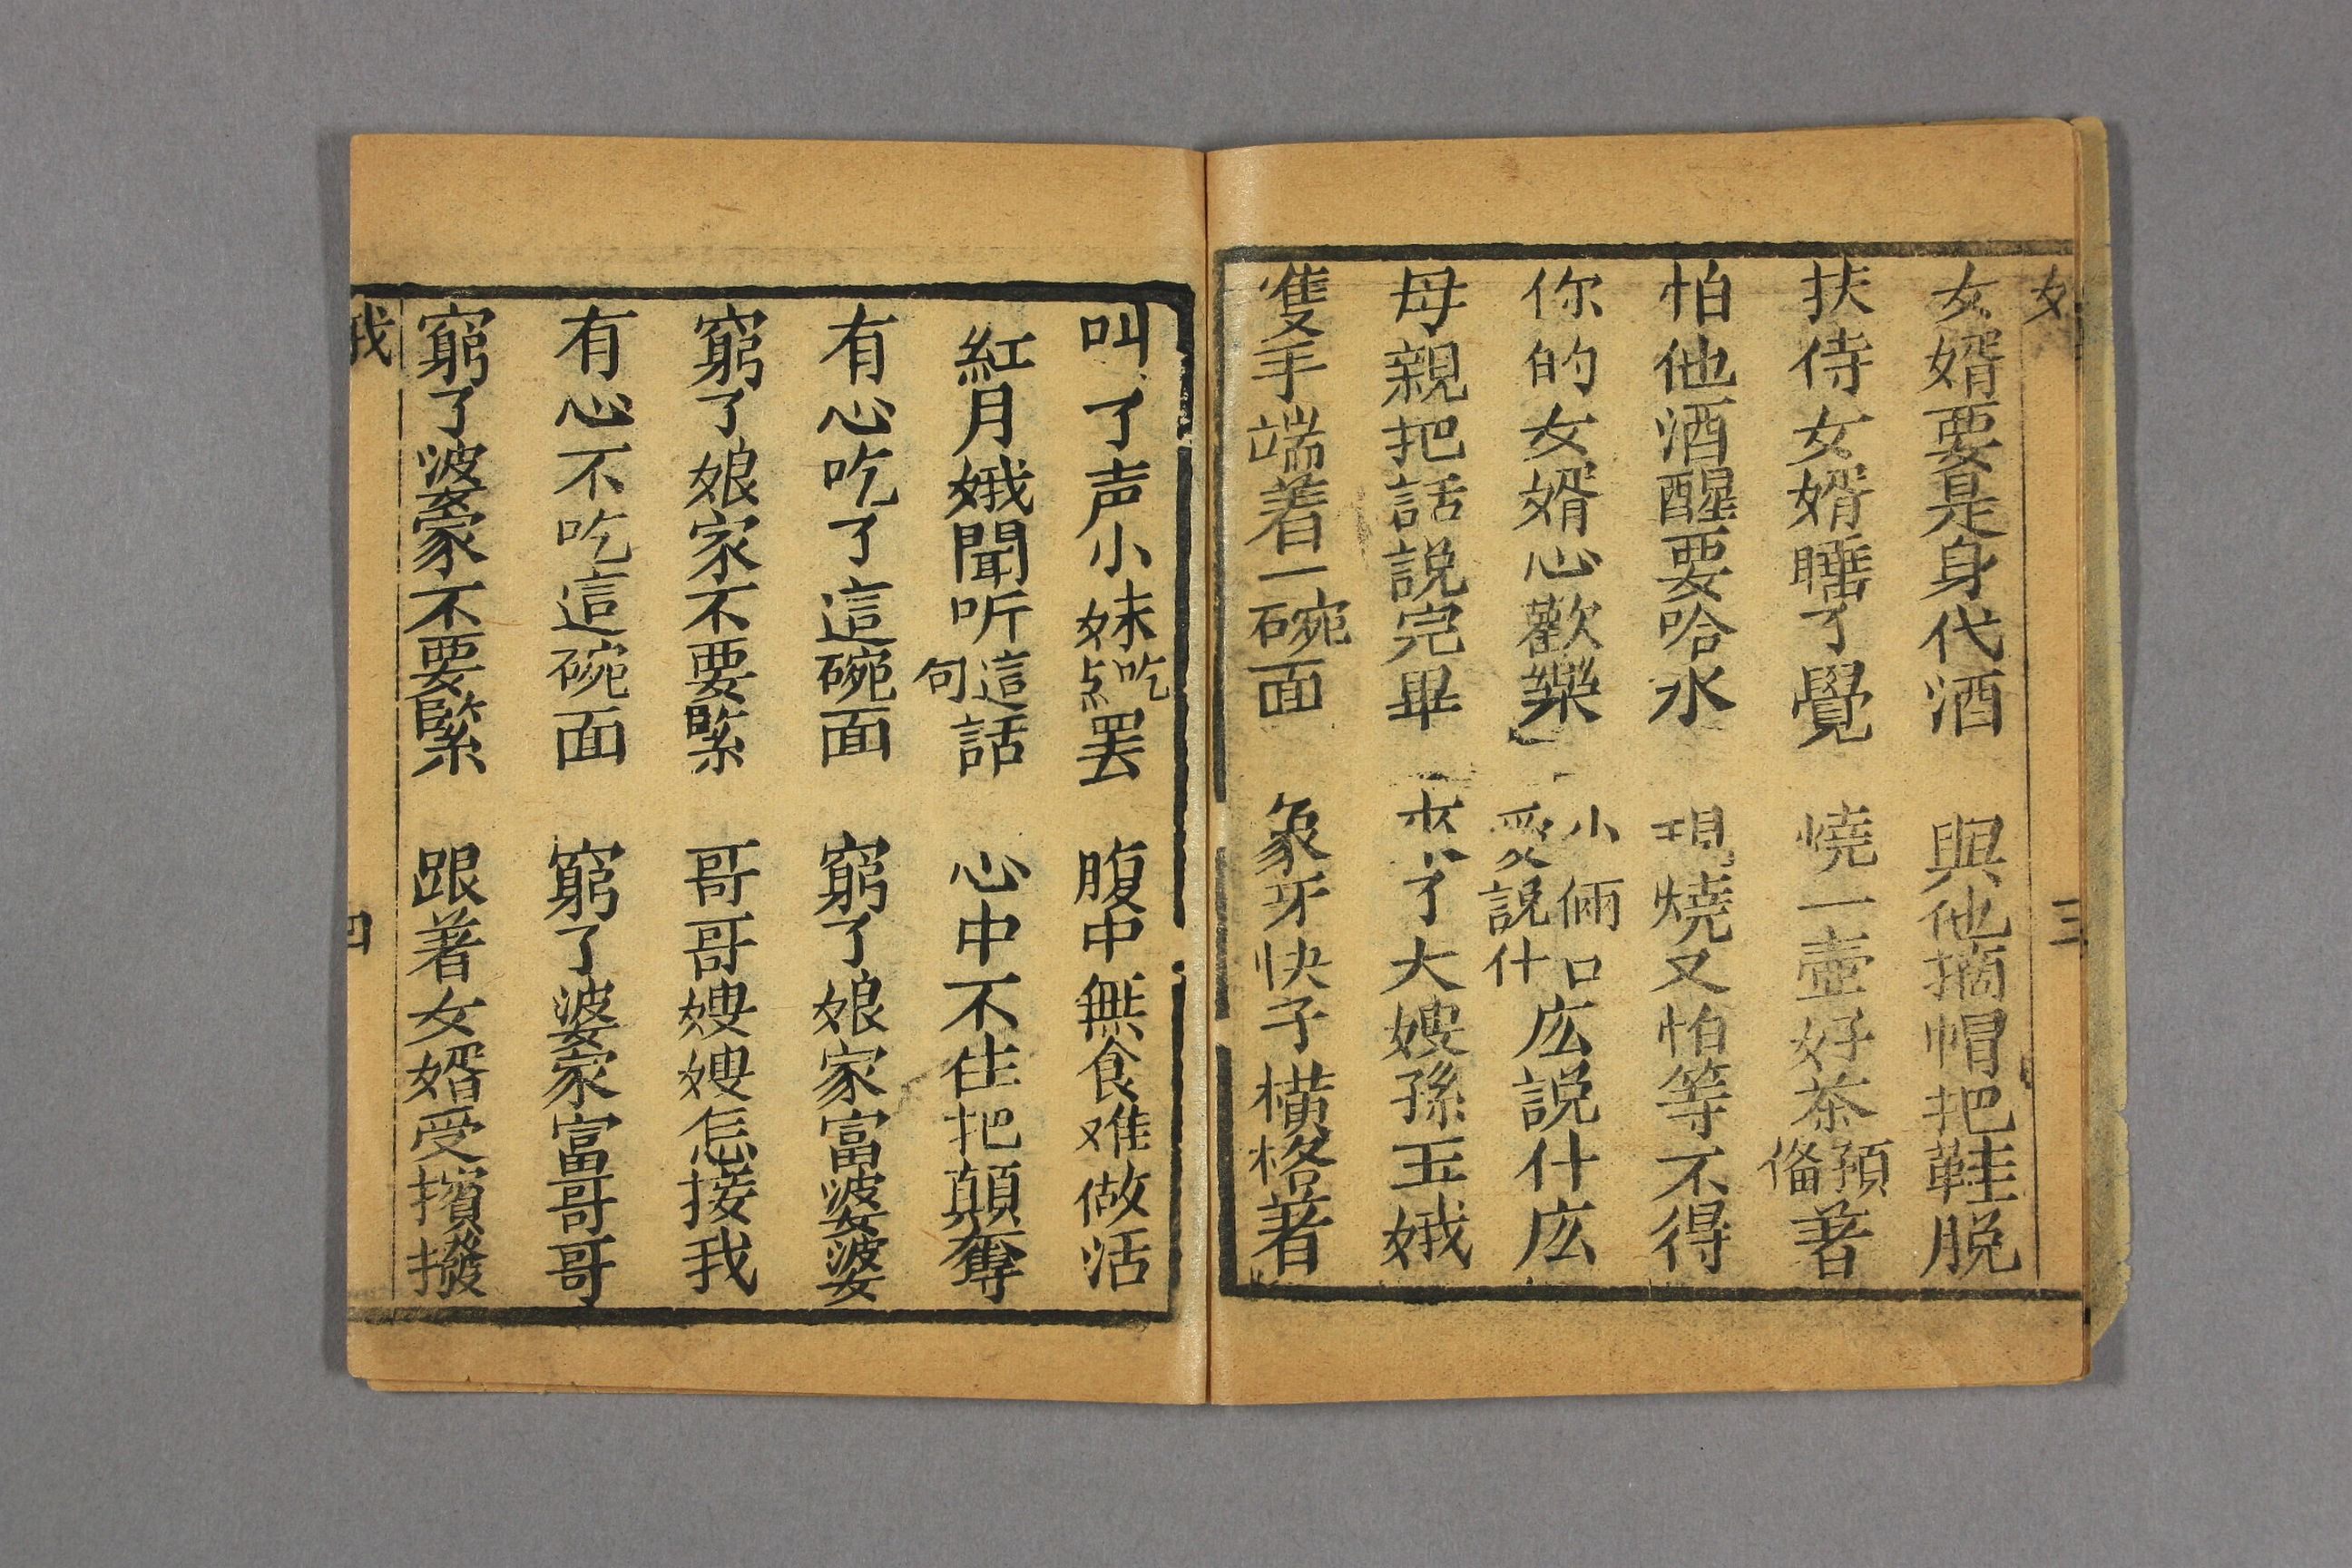 女婿要是身代酒　與他摘帽把鞋脱
扶侍女婿睡了覺　燒一壺好茶預偹著
怕他酒醒要哈水　現燒又怕等不得
你的女婿心歡樂　小倆口愛說什庅說什庅
母親把話說完畢　來了大嫂孫玉娥
隻手端着一碗面　象牙快子橫格著
三
叫了声小妹吃点罢　腹中無食难做活
紅月娥聞听這句話　心中不住把顛奪
有心吃了這碗面　窮了娘家富婆婆
窮了娘家不要緊　哥哥嫂嫂怎接我
有心不吃這碗面　窮了婆家富哥哥
窮了婆家不要緊　跟著女婿受擯撥
四